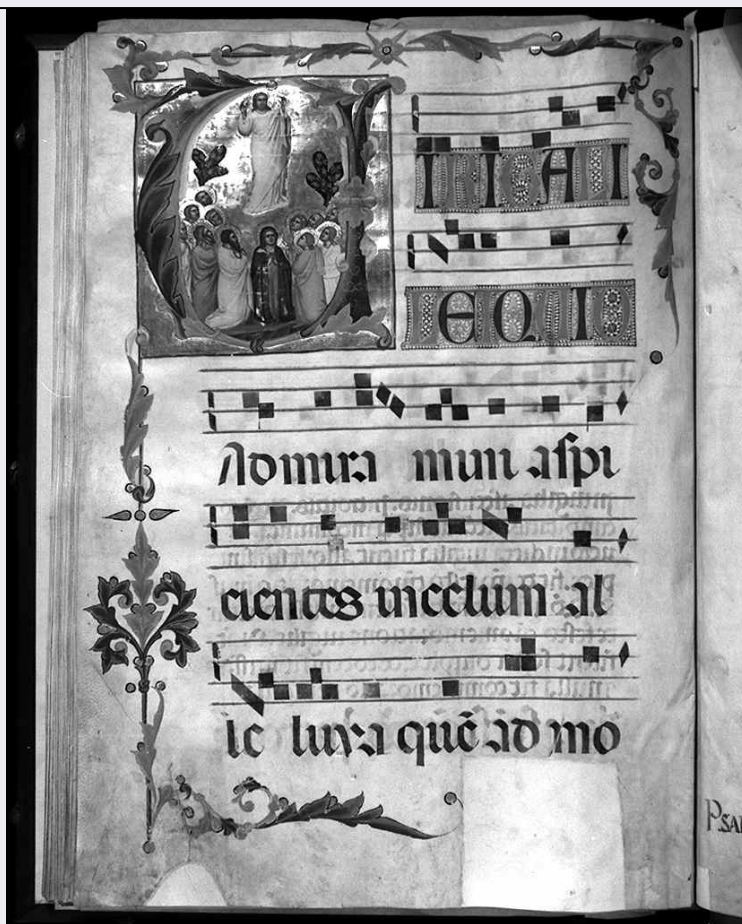 VIRI GALI
LEI QUID
Admira mini aſpi
cientes incelum al
le luya quē ad mo